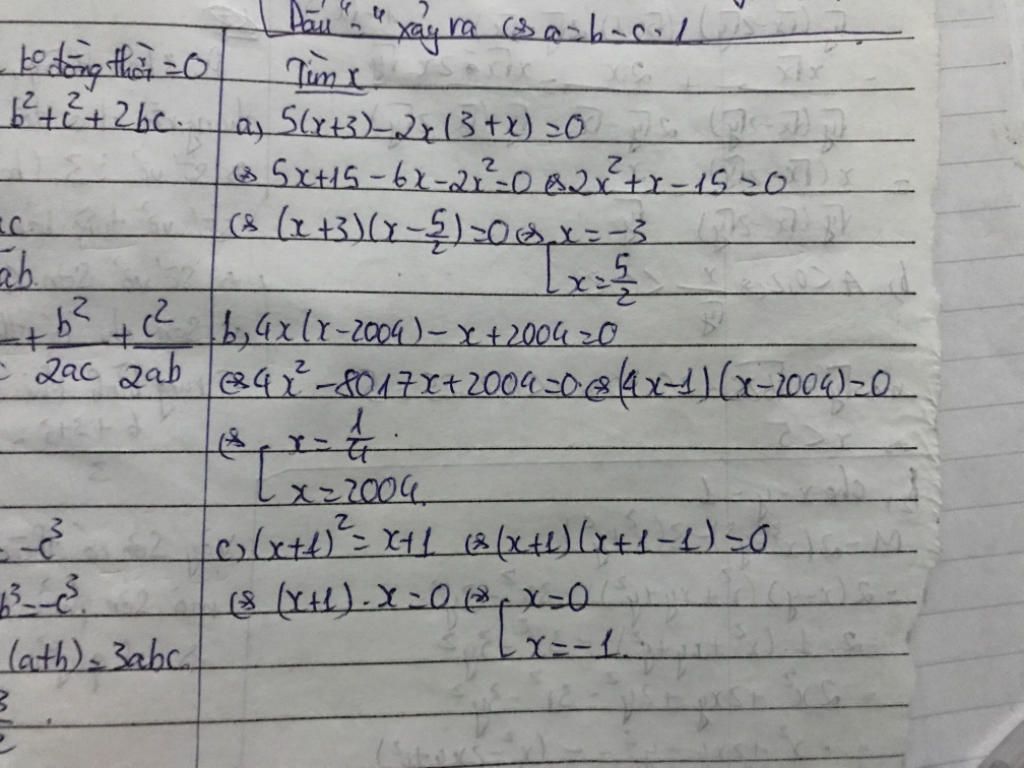 Dấu "=" xảy ra ⇔ a=b=c=1
đồng thời =0
b²+c²+2bc.
ab.
+ b²/2ac + c²/2ab
-c³
b³=-c³.
(a+b)=3abc.
Tìm x
a, 5(x+3)-2x(3+x)=0
⇔ 5x+15-6x-2x²=0 ⇔ 2x²+x-15=0
⇔ (x+3)(x-5/2)=0 ⇔ [ x=-3
x=5/2
b, 4x(x-2004)-x+2004=0
⇔ 4x²-8017x+2004=0 ⇔ (4x-1)(x-2004)=0
⇔ [ x=1/4
x=2004.
c, (x+1)²=x+1 ⇔ (x+1)(x+1-1)=0
⇔ (x+1).x=0 ⇔ [ x=0
x=-1.